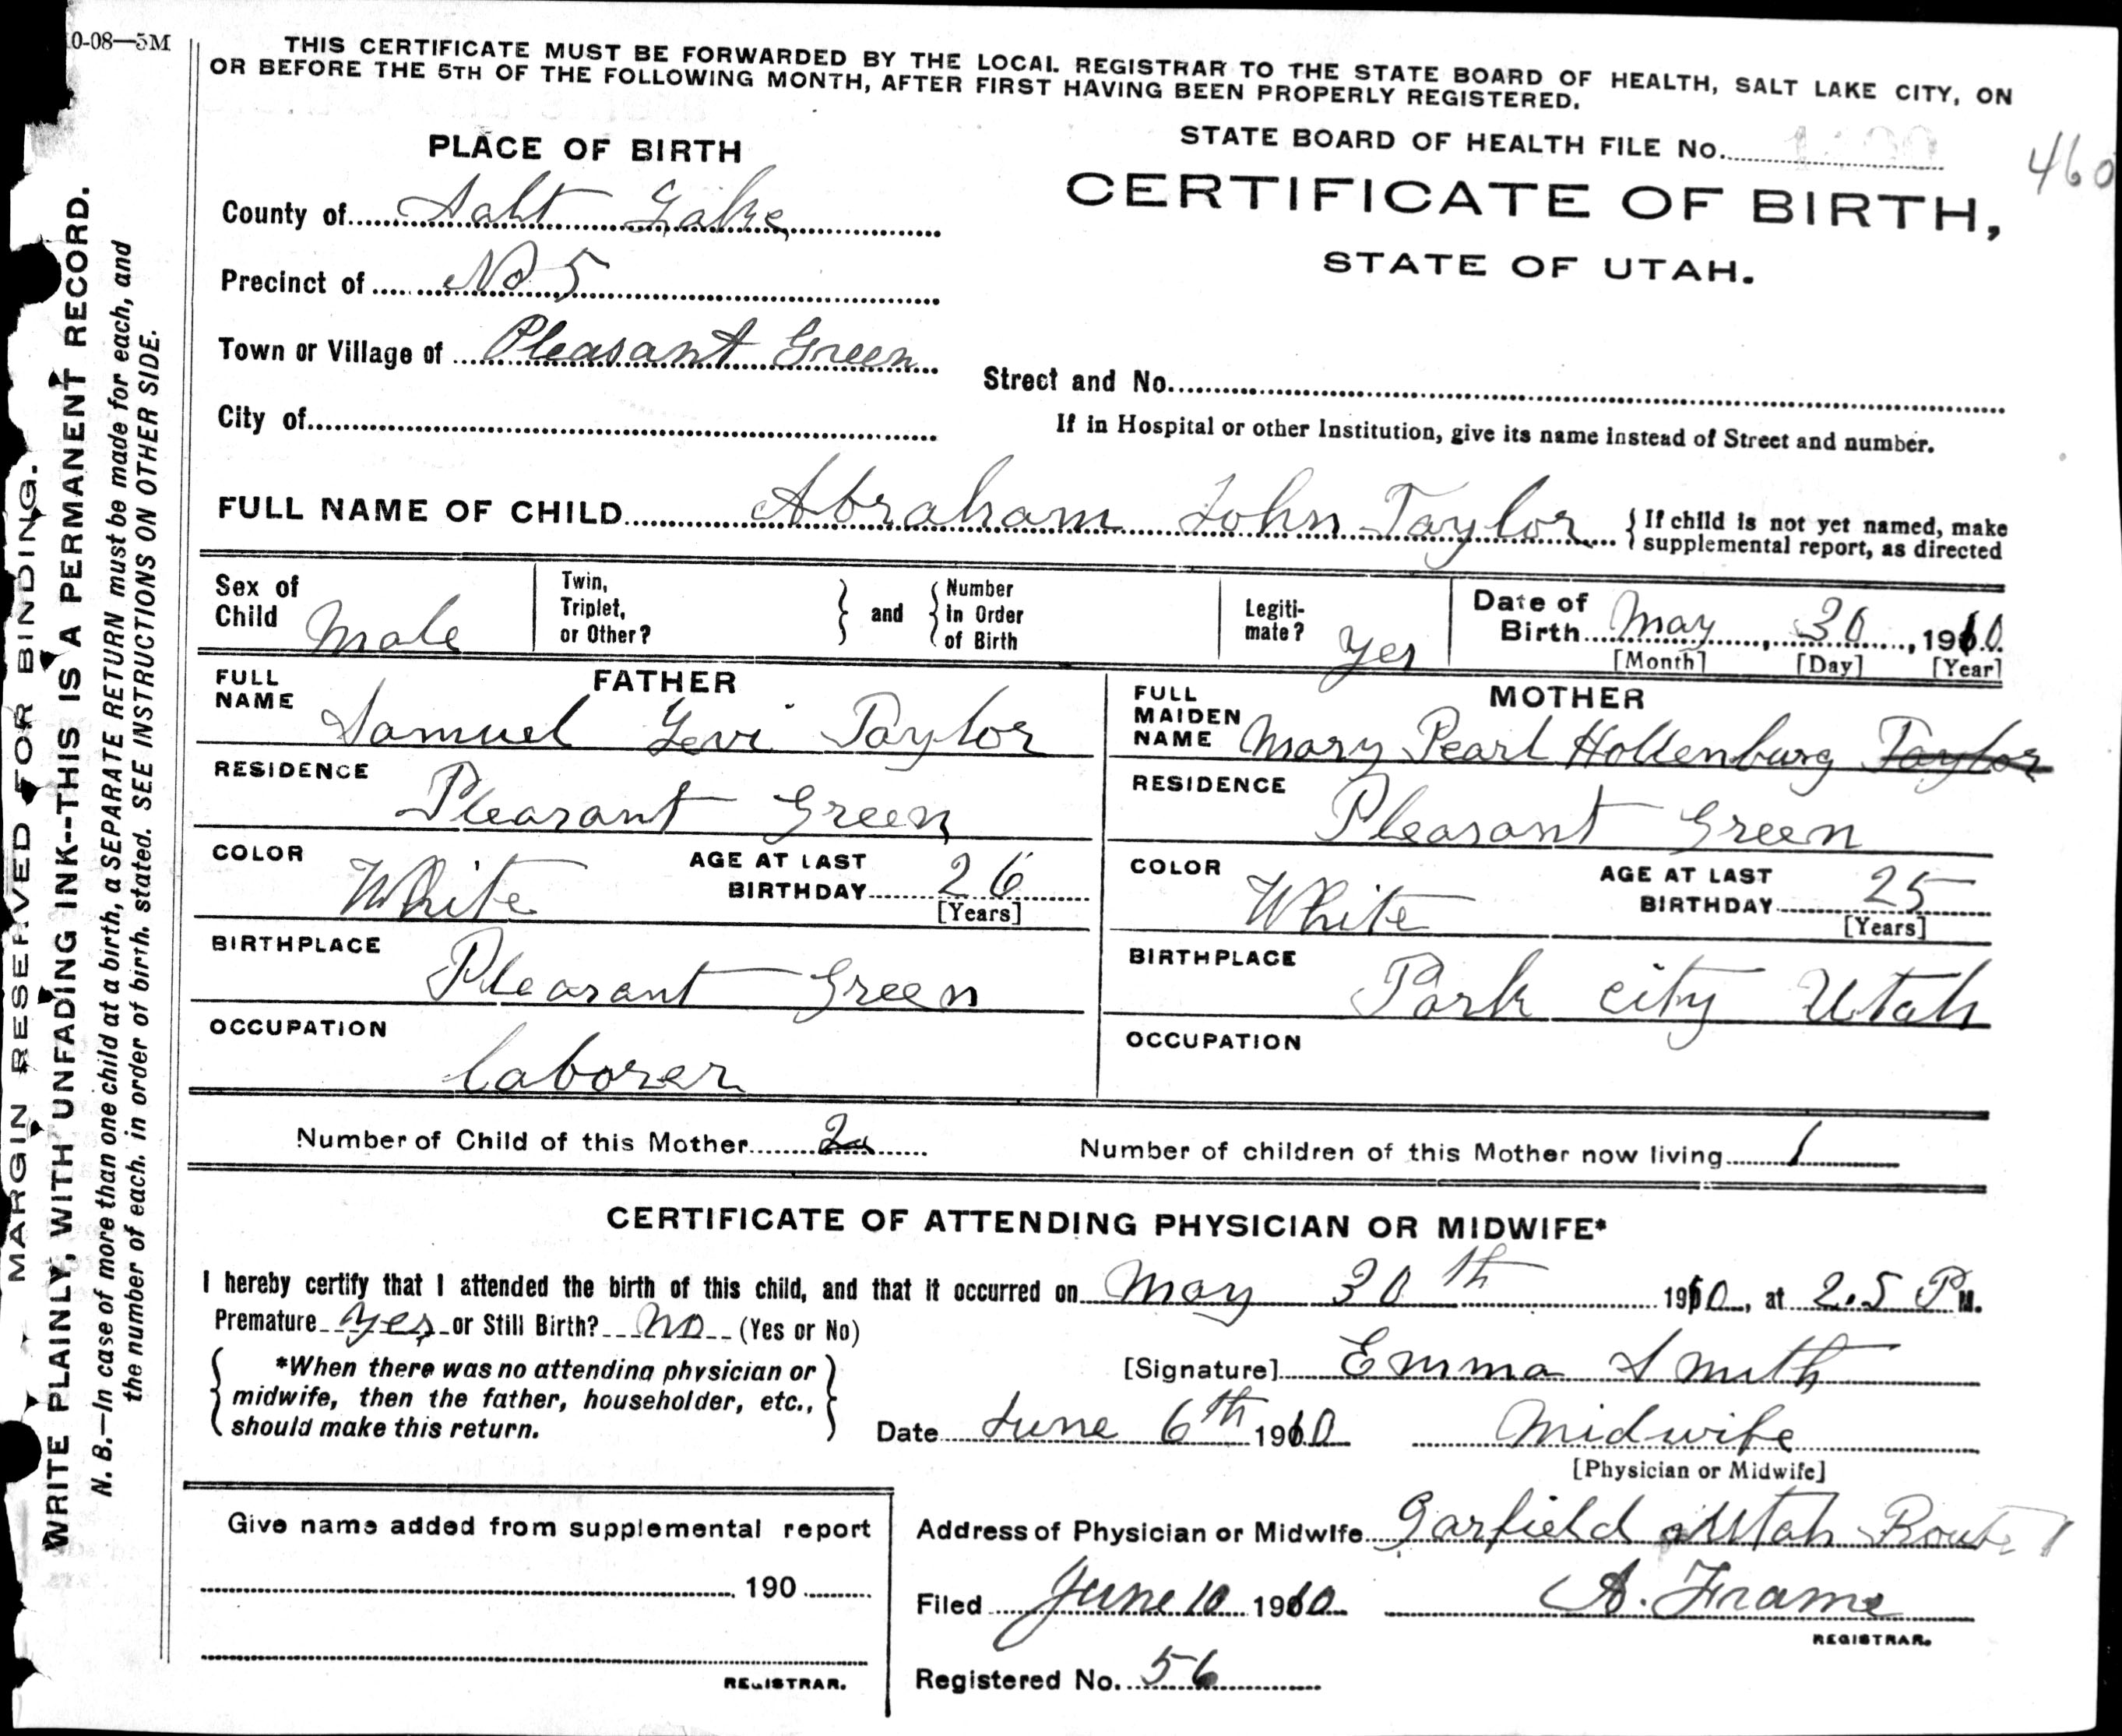 0-08—5M
THIS CERTIFICATE MUST BE FORWARDED BY THE LOCAL REGISTRAR TO THE STATE BOARD OF HEALTH, SALT LAKE CITY, ON
OR BEFORE THE 5TH OF THE FOLLOWING MONTH, AFTER FIRST HAVING BEEN PROPERLY REGISTERED.
STATE BOARD OF HEALTH FILE No.
460
CERTIFICATE OF BIRTH,
STATE OF UTAH.
PLACE OF BIRTH
County of Salt Lake
Precinct of No 5
Town or Village of Pleasant Green
City of
Street and No.
If in Hospital or other Institution, give its name instead of Street and number.
FULL NAME OF CHILD Abraham John Taylor { If child is not yet named, make
supplemental report, as directed
Sex of
Child Male
Twin,
Triplet,
or Other?
} and {
Number
in Order
of Birth
Legiti-
mate? Yes
Date of
Birth May 30, 1910
[Month] [Day] [Year]
FATHER
FULL
NAME Samuel Levi Taylor
RESIDENCE
Pleasant Green
COLOR White
AGE AT LAST
BIRTHDAY 26
[Years]
BIRTHPLACE
Pleasant Green
OCCUPATION
laborer
MOTHER
FULL
MAIDEN
NAME Mary Pearl Hollenburg Taylor
RESIDENCE
Pleasant Green
COLOR White
AGE AT LAST
BIRTHDAY 25
[Years]
BIRTHPLACE
Park city Utah
OCCUPATION
Number of Child of this Mother 2
Number of children of this Mother now living 1
CERTIFICATE OF ATTENDING PHYSICIAN OR MIDWIFE*
I hereby certify that I attended the birth of this child, and that it occurred on May 30th 1910, at 2.5 P M.
Premature yes or Still Birth? No (Yes or No)
{ *When there was no attending physician or }
midwife, then the father, householder, etc.,
should make this return.
[Signature] Emma Smith
Date June 6th 1910
Midwife
[Physician or Midwife]
Give name added from supplemental report
190
REGISTRAR.
Address of Physician or Midwife Garfield Utah Route 1
Filed June 10 1910 A. Frame
REGISTRAR.
Registered No. 56
MARGIN RESERVED FOR BINDING.
WRITE PLAINLY, WITH UNFADING INK--THIS IS A PERMANENT RECORD.
N. B.—In case of more than one child at a birth, a SEPARATE RETURN must be made for each, and
the number of each, in order of birth, stated. SEE INSTRUCTIONS ON OTHER SIDE.